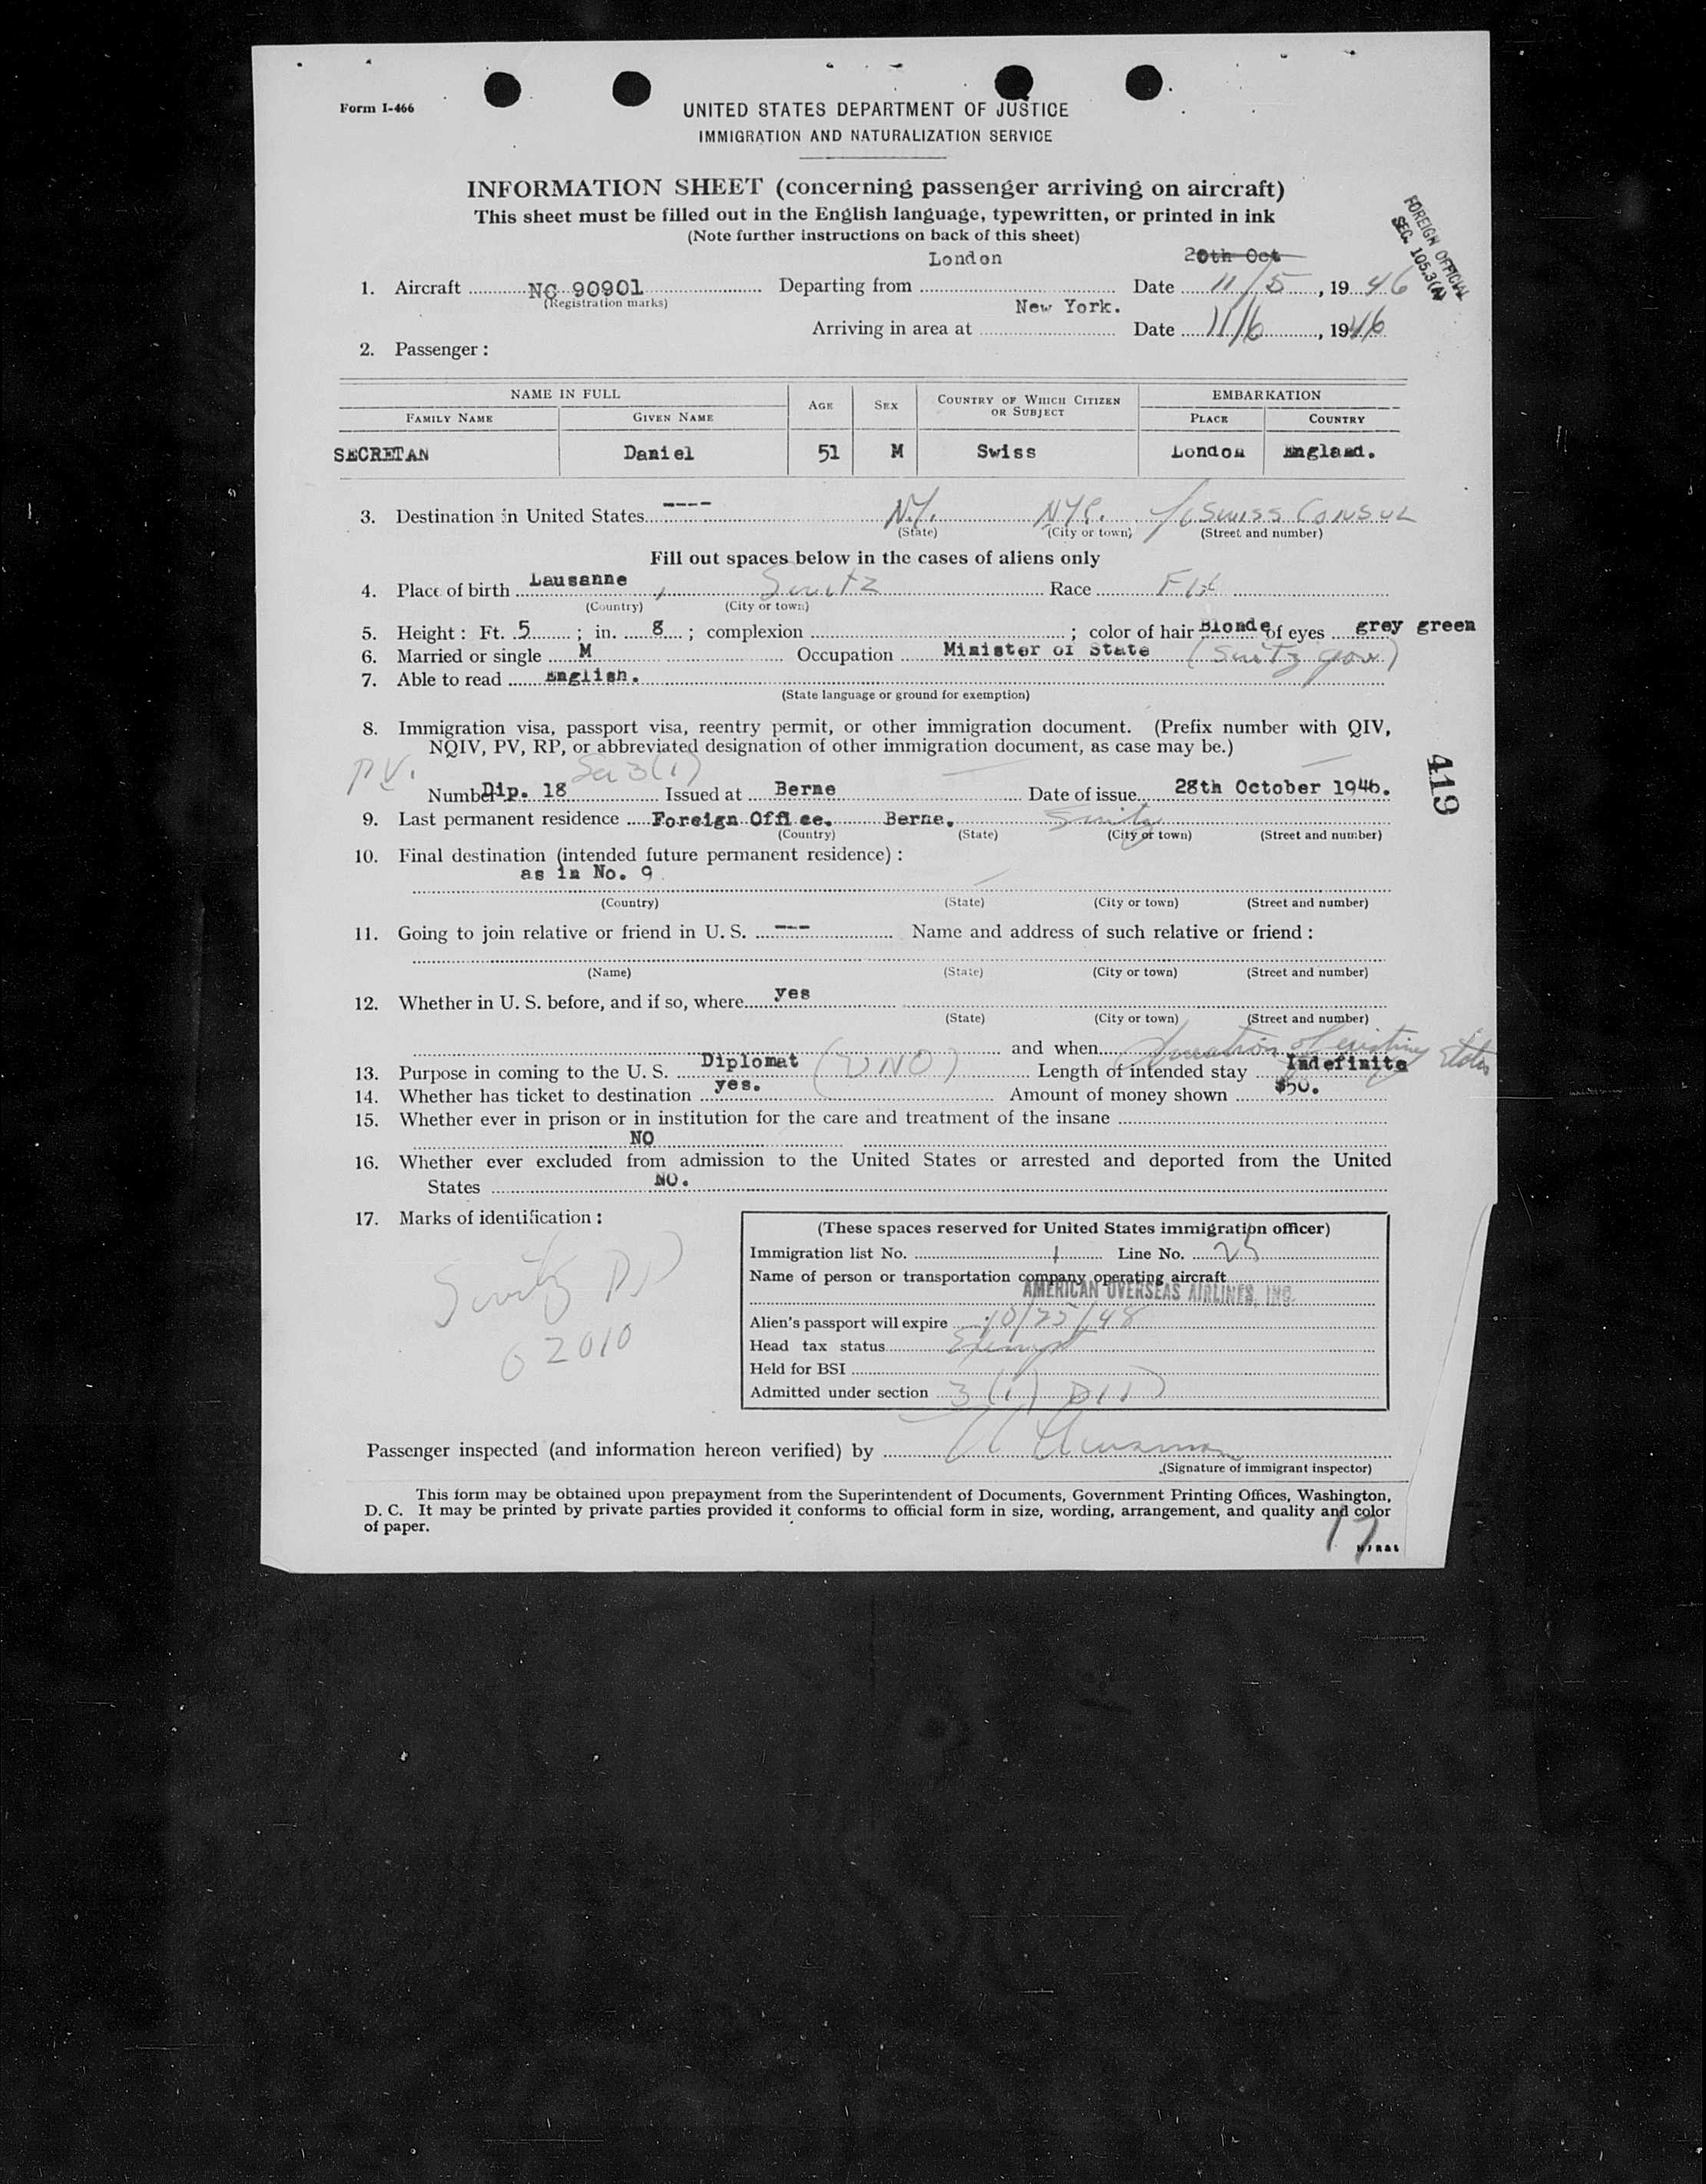 Form I-466
UNITED STATES DEPARTMENT OF JUSTICE
IMMIGRATION AND NATURALIZATION SERVICE
INFORMATION SHEET (concerning passenger arriving on aircraft)
This sheet must be filled out in the English language, typewritten, or printed in ink
(Note further instructions on back of this sheet)
FOREIGN OFFICIAL
SEC. 105.3(A)
London 20th Oct
1. Aircraft NC 90901 Departing from Date 11/5, 1946
(Registration marks)
New York.
Arriving in area at Date 11/6, 1946
2. Passenger:
NAME IN FULL AGE SEX COUNTRY OF WHICH CITIZEN OR SUBJECT EMBARKATION
FAMILY NAME GIVEN NAME PLACE COUNTRY
SECRETAN Daniel 51 M Swiss London England.
3. Destination in United States ---- N.Y. NYC. % SWISS CONSUL
(State) (City or town) (Street and number)
Fill out spaces below in the cases of aliens only
4. Place of birth Lausanne, Switz Race
(Country) (City or town)
5. Height: Ft. 5; in. 8; complexion ; color of hair Blonde of eyes grey green
6. Married or single M Occupation Minister of State (Switz gov)
7. Able to read English.
(State language or ground for exemption)
8. Immigration visa, passport visa, reentry permit, or other immigration document. (Prefix number with QIV,
NQIV, PV, RP, or abbreviated designation of other immigration document, as case may be.)
PV. Sec 3(1)
Number Dip. 18 Issued at Berne Date of issue 28th October 1946.
419
9. Last permanent residence Foreign Office. Berne. Switz
(Country) (State) (City or town) (Street and number)
10. Final destination (intended future permanent residence):
as in No. 9
(Country) (State) (City or town) (Street and number)
11. Going to join relative or friend in U. S. --- Name and address of such relative or friend:
(Name) (State) (City or town) (Street and number)
12. Whether in U. S. before, and if so, where yes
(State) (City or town) (Street and number)
and when duration of existing status
13. Purpose in coming to the U. S. Diplomat (UNO) Length of intended stay Indefinite
14. Whether has ticket to destination yes. Amount of money shown $50.
15. Whether ever in prison or in institution for the care and treatment of the insane
NO
16. Whether ever excluded from admission to the United States or arrested and deported from the United
States NO.
17. Marks of identification:
Switz PP
02010
(These spaces reserved for United States immigration officer)
Immigration list No. 1 Line No. 25
Name of person or transportation company operating aircraft
AMERICAN OVERSEAS AIRLINES, INC.
Alien's passport will expire 10/25/48
Head tax status Exempt
Held for BSI
Admitted under section 3(1)
Passenger inspected (and information hereon verified) by
(Signature of immigrant inspector)
This form may be obtained upon prepayment from the Superintendent of Documents, Government Printing Offices, Washington,
D. C. It may be printed by private parties provided it conforms to official form in size, wording, arrangement, and quality and color
of paper.
17